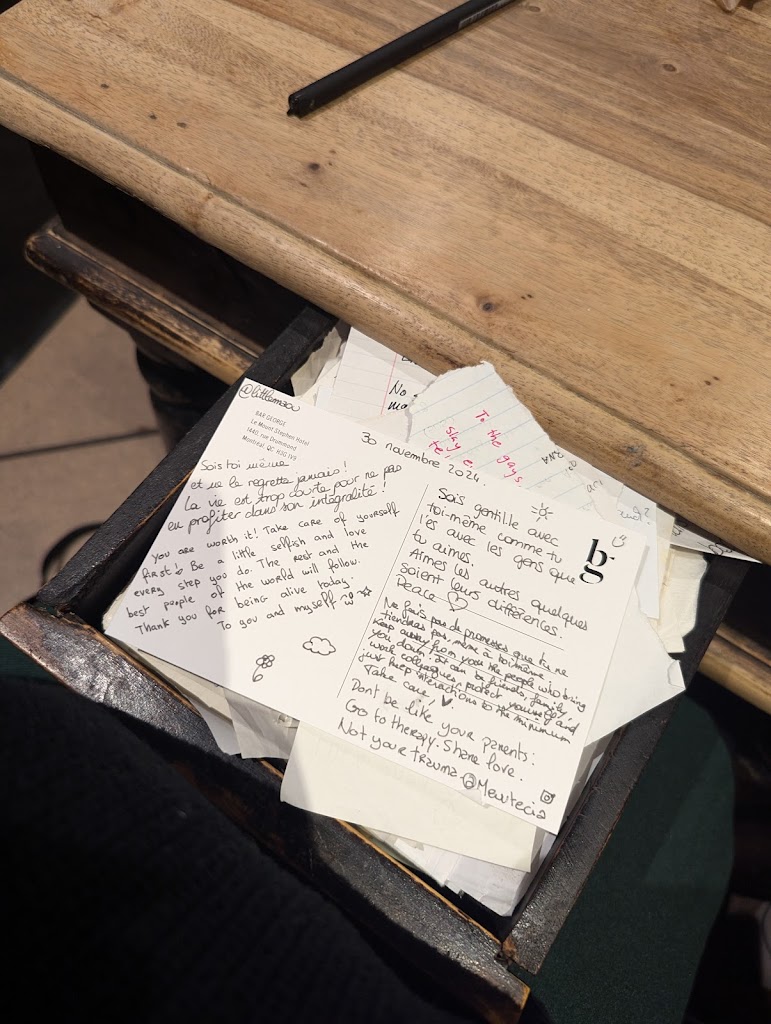 @littlemaou
BAR GEORGE
Le Mount Stephen Hotel
1440, rue Drummond
Montréal, QC H3G 1V9
30 novembre 2024.
Sois toi même
et ne le regrette jamais!
La vie est trop courte pour ne pas
en profiter dans son intégralité!
you are worth it! Take care of yourself
first! Be a little selfish and love
every step you do. The rest and the
best people of the world will follow.
Thank you for being alive today.
To you and myself
Sois gentille avec
toi-même comme tu
l'es avec les gens que
tu aimes.
Aimes les autres quelques
soient leurs différences.
Peace
bg
Ne fais pas de promesses que tu ne
tiendras pas, même à toi-même!
Keep away from you the people who bring
you down, it can be friends, family,
work colleagues, protect yourself and
just keep interactions to the minimum
Take care!
Dont be like your parents:
Go to therapy. Share love.
Not your trauma @Mewtecia
No
ma
To the gays
slay e.
te.